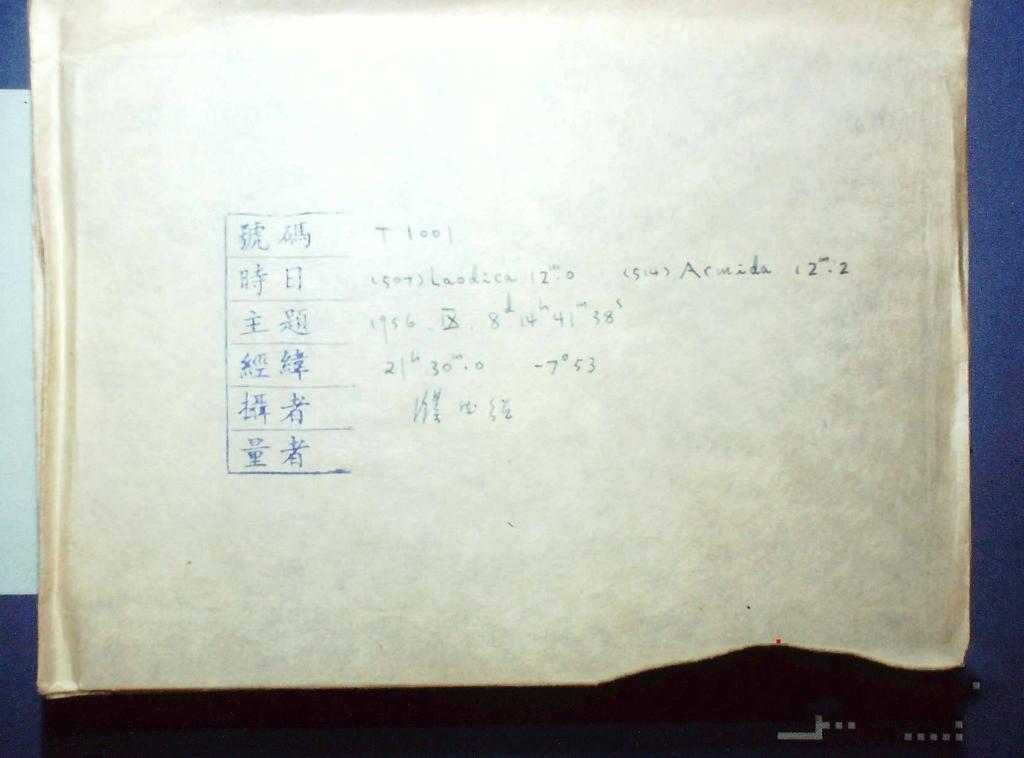 號碼 T 1001
時日 (507) Laodica 12ᵐ.0 (514) Armida 12ᵐ.2
主題 1956. IX. 8ᵈ 14ʰ 41ᵐ 38ˢ
經緯 21ʰ 30ᵐ.0 -7°53
攝者
量者